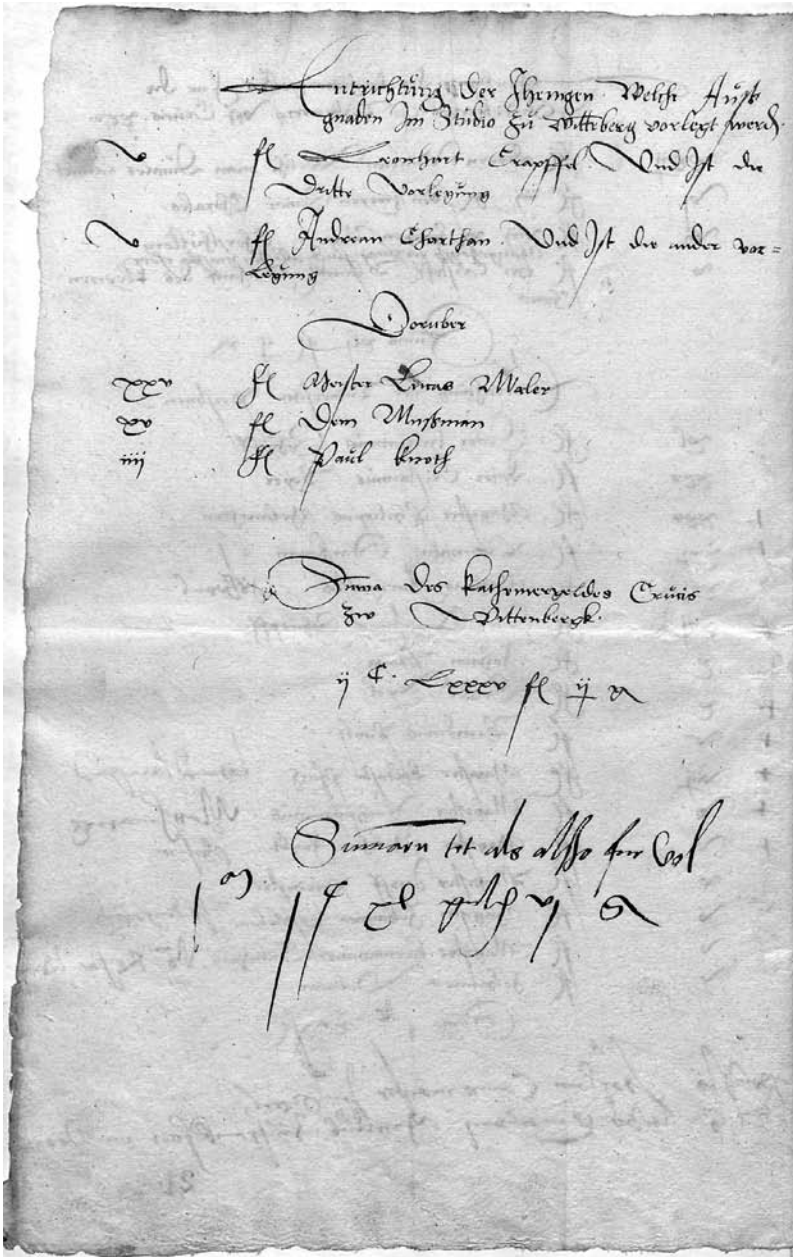 Entrichtung der Jhenigen Welche Auß
gnaden Jm Studio Zu Witteberg vorlegt werd.
v fl Leonhart Crapffel Und Jst die
Dritte Vorlegung
v fl Andream Charthan Und Jst die ander vor=
legung
Doruber
xxv fl Meister Lucas Maler
xv fl Dem Mußman
iiij fl Paul Knoth
Suma des Kathemergeldes Crucis
zw Wittenbergk.
ij C. Lxxxv fl ij
tot als alßo fur
xl vj